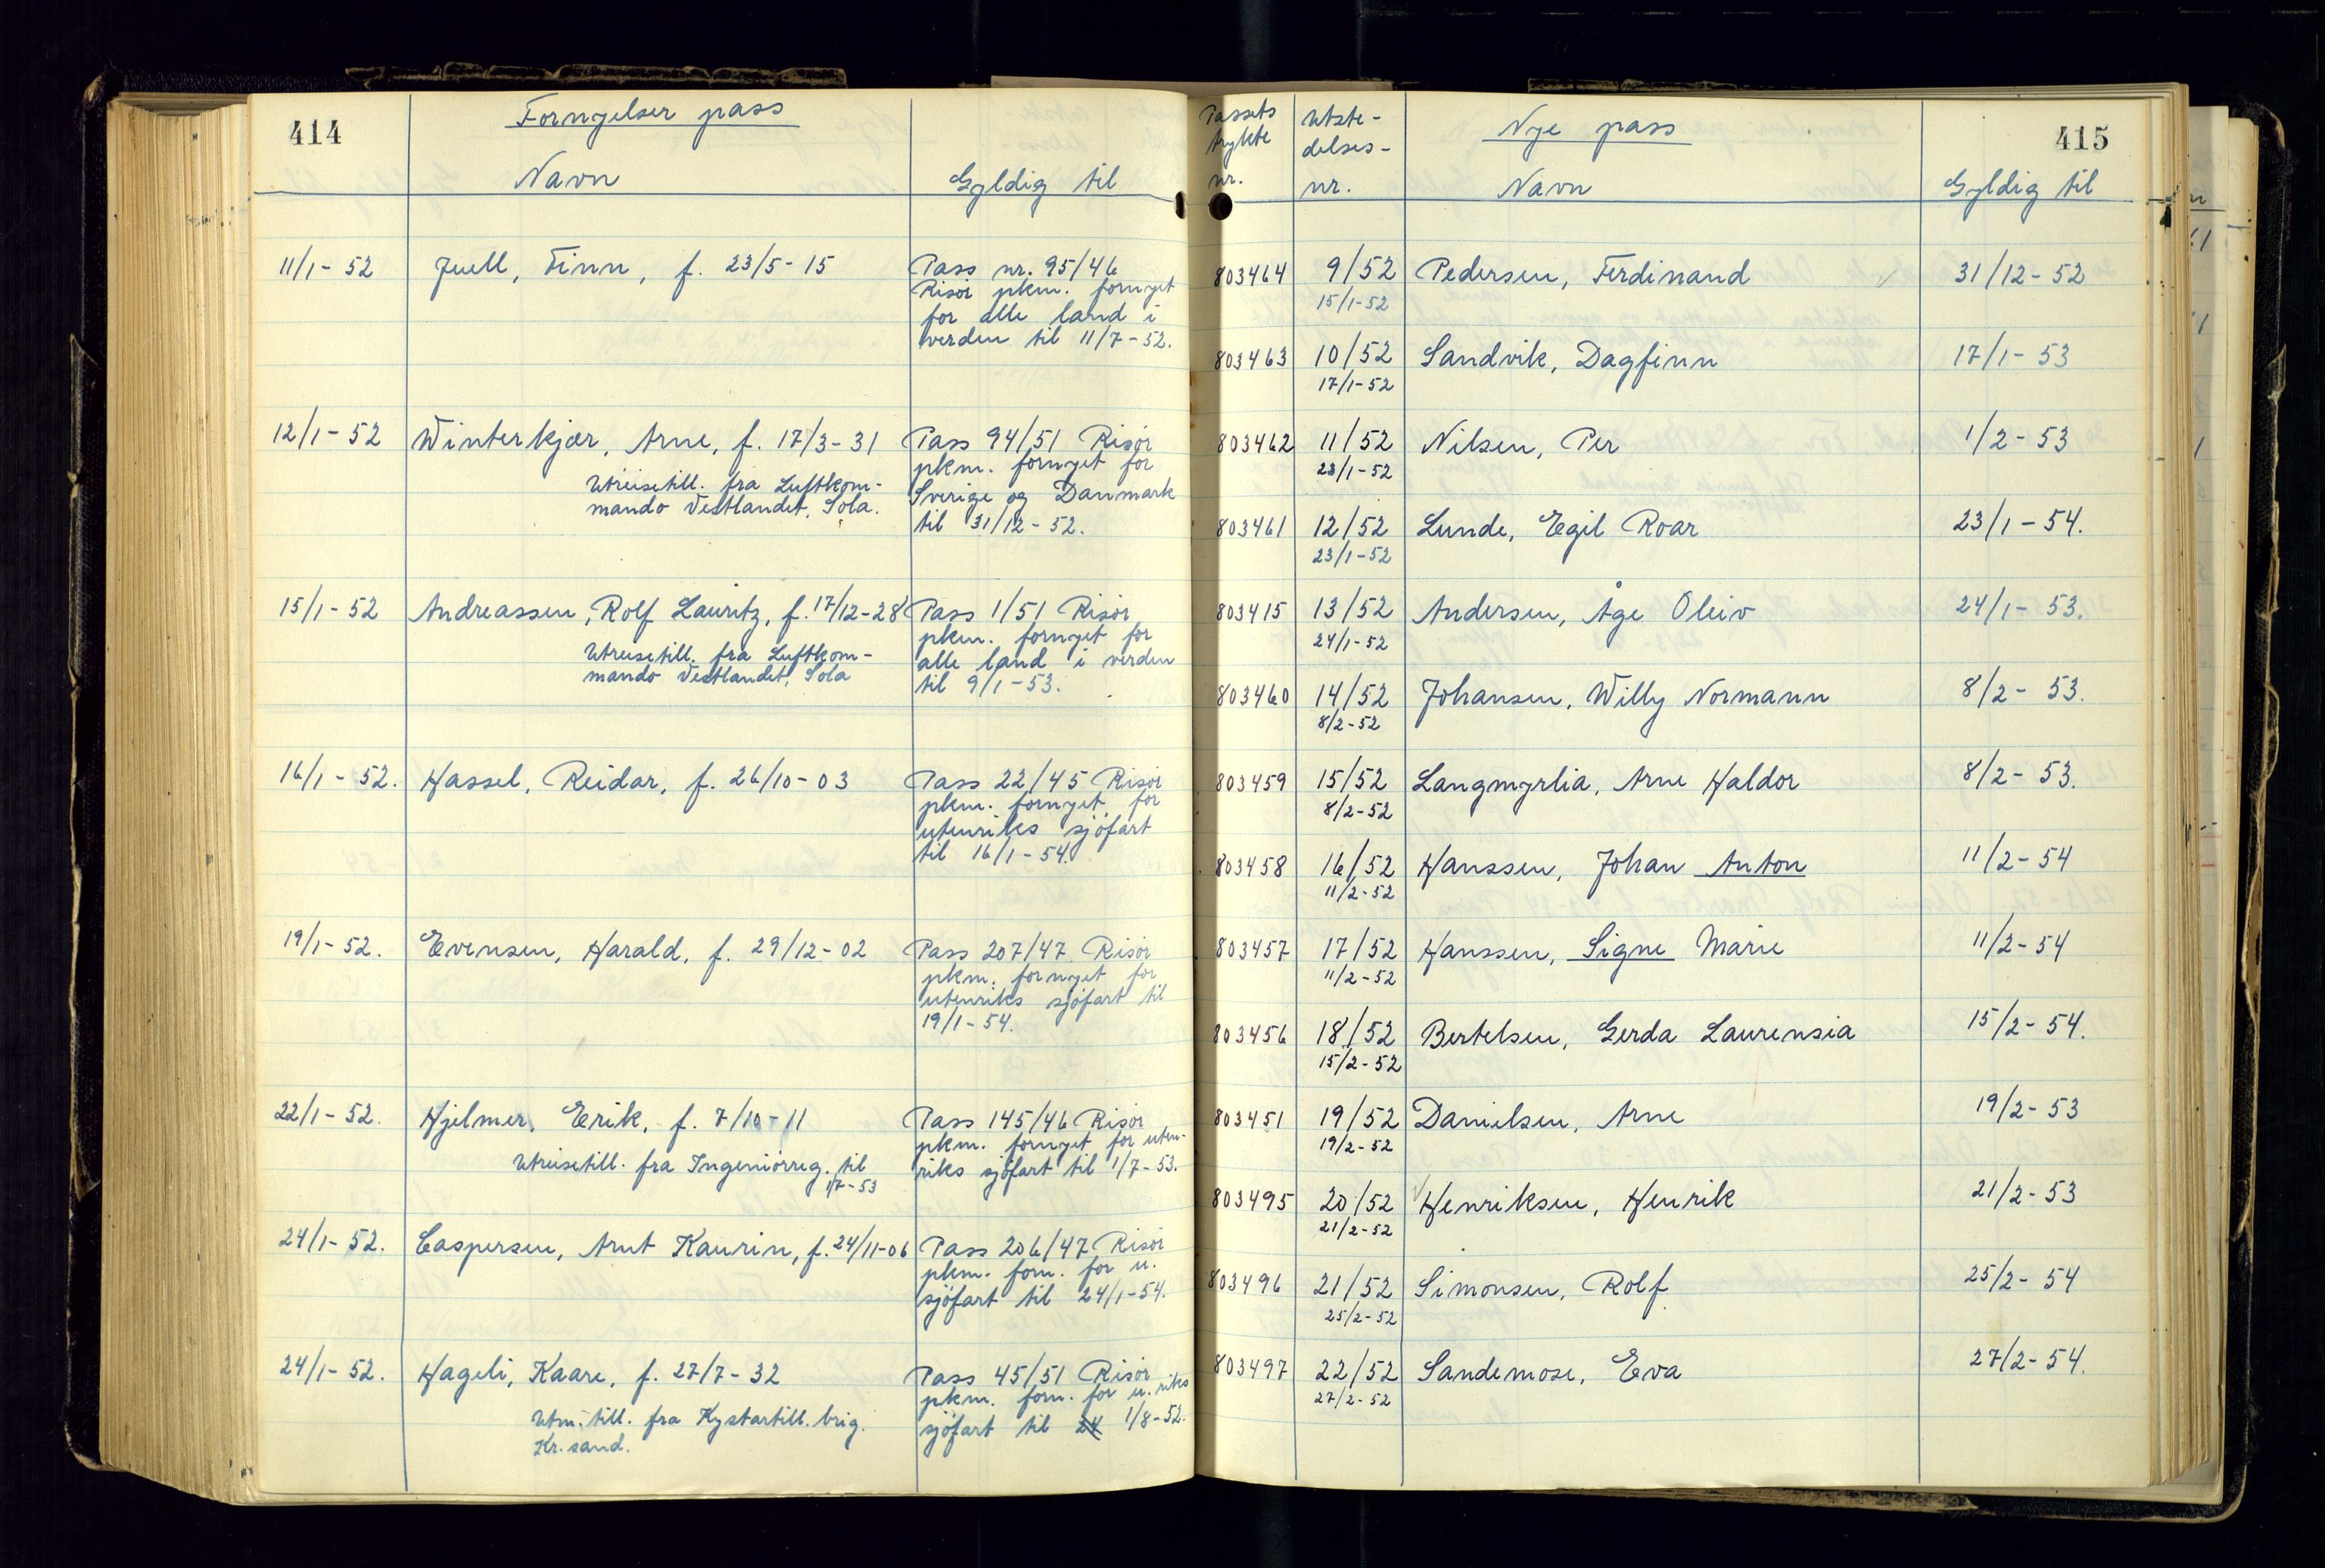 414
Fornyelser pass
Navn
Gyldig til
11/1- 52 Juell, Finn, f. 23/5- 15 Pass nr. 95/46
Risör pkm. fornyet
for alle land i
verden til 11/7-52.
12/1- 52 Winterkjær, Arne, f. 17/3-31 Pass 94/51 Risör
pkm. fornyet for
Utreisetill. fra Luftkom- Sverige og Danmark
mando Vestlandet, Sola. til 31/12-52.
15/1- 52 Andreassen, Rolf Lauritz, f. 17/12-28 Pass 1/51 Risör
pkm. fornyet for
Utreisetill. fra Luftkom- alle land i verden
mando Vestlandet, Sola til 9/1-53.
16/1- 52. Hassel, Reidar, f. 26/10- 03 Pass 22/45 Risör
pkm. fornyet for
utenriks sjöfart
til 16/1-54.
19/1- 52. Evensen, Harald, f. 29/12-02 Pass 207/47 Risör
pkm. fornyet for
utenriks sjöfart til
19/1-54.
22/1- 52. Hjelmer, Erik, f. 7/10-11 Pass 145/46 Risör
pkm. fornyet for uten-
Utreisetill. fra Ingeniörreg. til riks sjöfart til 1/7-53.
1/7-53
24/1- 52. Caspersen, Arnt Kaurin, f. 24/11-06 Pass 206/47 Risör
pkm. forn. for u.
sjöfart til 24/1-54.
24/1- 52. Hageli, Kaare, f. 27/7- 32 Pass 45/51 Risör
pkm. forn. for u. riks
Utm. till. fra Kystartill. brig. sjöfart til 24 1/8-52.
Kr. sand.
415
Passets
trykte
nr.
Utste-
delses-
nr.
Nye pass
Navn
Gyldig til
803464 9/52 Pedersen, Ferdinand 31/12-52
15/1-52
803463 10/52 Sandvik, Dagfinn 17/1- 53
17/1-52
803462 11/52 Nilsen, Per 1/2- 53
23/1-52
803461 12/52 Lunde, Egil Roar 23/1-54.
23/1-52
803415 13/52 Andersen, Åge Oleiv 24/1- 53.
24/1-52
803460 14/52 Johansen, Willy Normann 8/2- 53.
8/2-52
803459 15/52 Langmyrlia, Arne Haldor 8/2- 53.
8/2-52
803458 16/52 Hanssen, Johan Anton 11/2- 54
11/2-52
803457 17/52 Hanssen, Signe Marie 11/2-54
11/2-52
803456 18/52 Bertelsen, Gerda Laurensia 15/2-54.
15/2-52
803451 19/52 Danielsen, Arne 19/2-53
19/2-52
803495 20/52 Henriksen, Henrik 21/2-53
21/2-52
803496 21/52 Simonsen, Rolf 25/2- 54
25/2-52
803497 22/52 Sandemose, Eva 27/2-54.
27/2-52